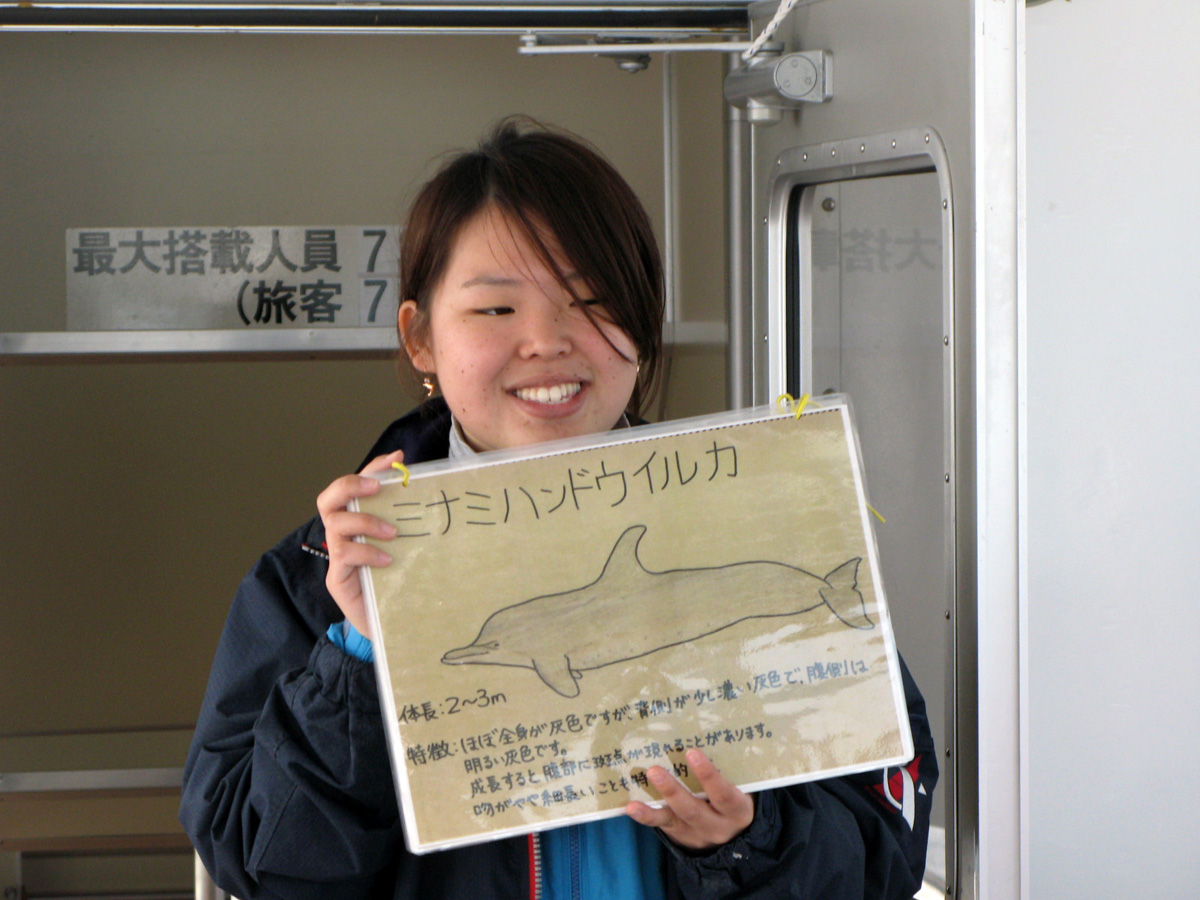 最大搭載人員 7
(旅客 7
ミナミハンドウイルカ
体長:2~3m
特徴:ほぼ全身が灰色ですが、背側が少し濃い灰色で、腹側は
明るい灰色です。
成長すると腹部に斑点が現れることがあります。
吻がやや細長いことも特 的